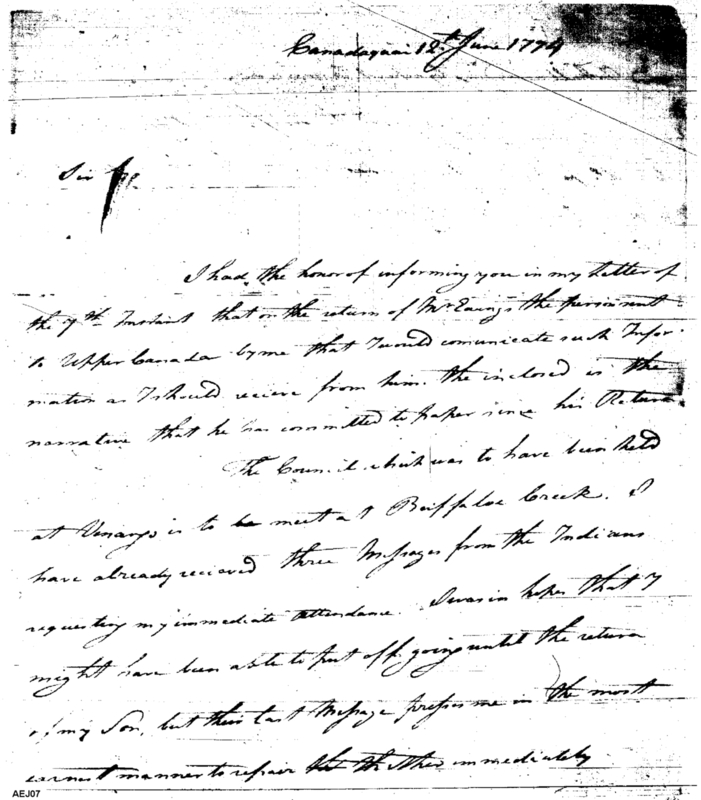 Canadaquai 12th June 1794
Sir
I had the honor of informing you in my Letter of
the 7th Instant that on the return of Mr Ewings the person sent
to Upper Canada by me that I would comunicate such Infor-
mation as I should recieve from him. the inclosed is the
narrative that he has committed to paper since his Return
The Council which was to have been held
at Venango is to be meet at Buffaloe Creek. I
have already recieved three Messages from the Indians
requesting my immediate attendance. I was in hopes that I
might have been able to put off going until the return
of my Son, but their last Message presses me in the most
earnest manner to repair thither immediately
AEJ07